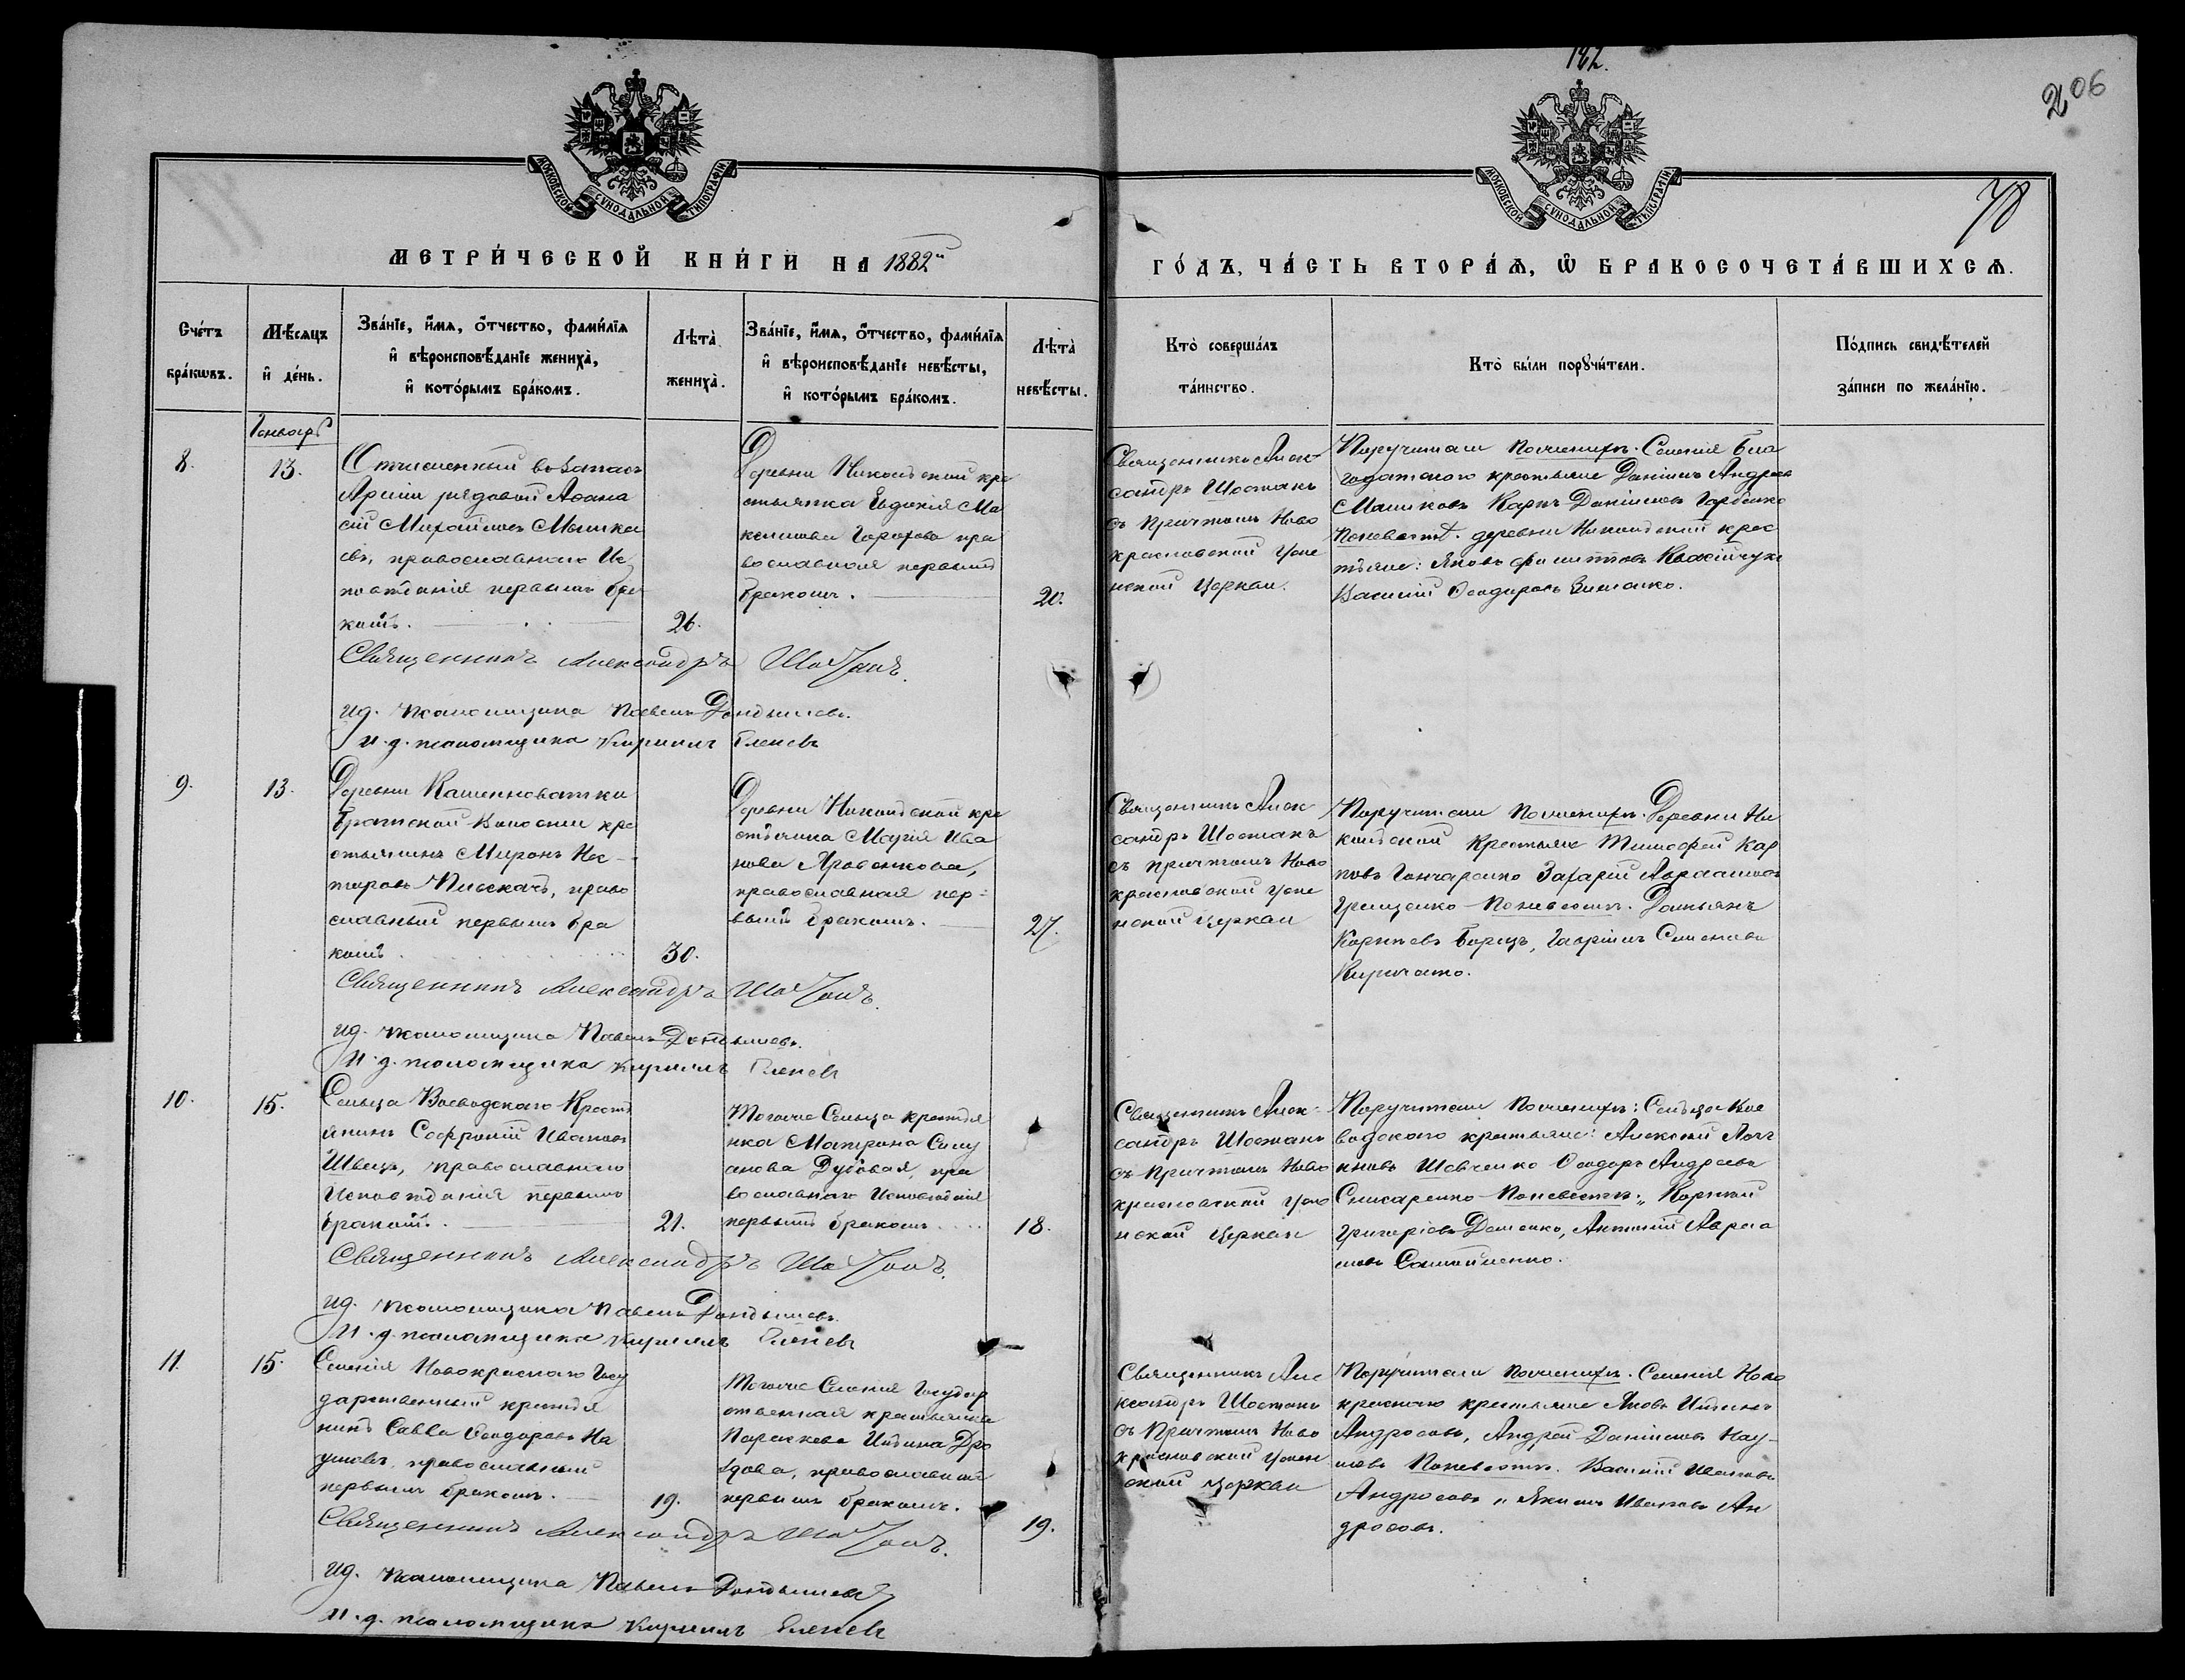 206
МОСКОВСКОЙ СѴНОДАЛЬНОЙ ТИПОГРАФІИ
МОСКОВСКОЙ СѴНОДАЛЬНОЙ ТИПОГРАФІИ
МЕТРИ́ЧЕСКОЙ КНИ́ГИ НА 1882й
ГО́ДЪ, ЧА́СТЬ ВТОРА́Ѧ, Ѡ҆ БРАКОСОЧЕТА́ВШИХСѦ.
Сче́тъ бра́кѡвъ.
Мѣ́сѧцъ и҆ де́нь.
Зва́нїе, и҆́мѧ, ѻ҆́тчество, фами́лїѧ
и҆ вѣроисповѣ́данїе жениха̀,
и҆ кото́рымъ бра́комъ.
Лѣта̀
жениха̀.
Зва́нїе, и҆́мѧ, ѻ҆́тчество, фами́лїѧ
и҆ вѣроисповѣ́данїе невѣ́сты,
и҆ кото́рымъ бра́комъ.
Лѣта̀
невѣ́сты.
Кто̀ соверша́лъ
та́инство.
Кто̀ бы́ли порꙋчи́тели.
По́дпись свидѣ́телей
за́писи по жела́нїю.
Январь
8.
13.
Отчисленный въ запасъ
Арміи рядовой Аѳана
сій Михайловъ
православнаго Ис
повѣданія первымъ бра
комъ.
26.
Деревни Никольской кре
стьянка Евдокія Ма
ксимова Горохова пра
вославная первымъ
бракомъ.
20.
Священникъ Алек
сандръ Шостакъ
съ причтомъ Ново
красновской Успе
нской Церкви.
Поручители по женихѣ. Селенія Бла
годатнаго крестьяне Даніилъ Андреев
Машковъ Карпъ Даніиловъ Горбенко
по невѣстѣ. деревни Никольской крес
тьяне: Яковъ
Василій Ѳеодоровъ
Священникъ Александръ Шостакъ.
и.д. псаломщика Павелъ
И.д. псаломщика Кириллъ Еленевъ
9.
13.
Деревни Каменноватки
Братской Волости кре
стьянинъ Миронъ Нес-
торовъ право
славный первымъ бра
комъ
30.
Деревни Никольской кре
стьянка Марія Ива
нова
православная пер-
вымъ бракомъ.
27.
Священникъ Алек
сандръ Шостакъ
съ причтомъ Ново
красновской Успе
нской Церкви
Поручители по женихѣ. Деревни Ни
кольской Крестьяне Тимофей Кар
повъ Гончаренко Захарій Авраамовъ
Грищенко по невѣстѣ. Демьянъ
Корнѣевъ Борецъ, Гавріилъ Семеновъ
Священникъ Александръ Шостакъ.
и.д. псаломщика Павелъ
И.д. псаломщика Кириллъ Еленевъ
10.
15.
Сельца Воеводскаго Кресть
янинъ Софроній Ивановъ
Швецъ, православнаго
Исповѣданія первымъ
бракомъ.
21.
Тогоже Сельца крестья
нка Матрона Симу
анова Дубовая, пра
вославнаго Исповѣданія
первымъ бракомъ
18.
Священникъ Алек-
сандръ Шостакъ
съ Причтомъ Ново
красновской Успе
нской Церкви
Поручители по женихѣ: Сельца Вое
водскаго крестьяне: Алексій Лог
иновъ Шевченко Ѳеодоръ Андреевъ
Слисаренко По невѣстѣ: „ Корній
Григоріевъ Доценко, Антоній Авраа
мовъ Самойленко.
Священникъ Александръ Шостакъ.
и.д. псаломщика Павелъ
И.д. псаломщика Кириллъ Еленевъ
11.
15.
Селенія Новокраснаго Госу
дарственный крестья
нинъ Савва Ѳеодоровъ На
умовъ, православный
первымъ бракомъ.
19.
Тогоже Селенія Государ
ственная крестьянка
Параскева Ильина Дро
здова, православная
первымъ бракомъ.
19.
Священникъ Але
ксандръ Шостакъ
съ Причтомъ Ново
красновской Успен
ской Церкви
Поручители по женихѣ. Селенія Ново
краснаго крестьяне Яковъ Ильинъ
Андросовъ, Андрей Даніиловъ Нау-
мовъ По невѣстѣ. Василій Ивановъ
Андросовъ „ Якимъ Ивановъ Ан
дросовъ.
Священникъ Александръ Шостакъ.
и.д. псаломщика Павелъ
И.д. псаломщика Кириллъ Еленевъ